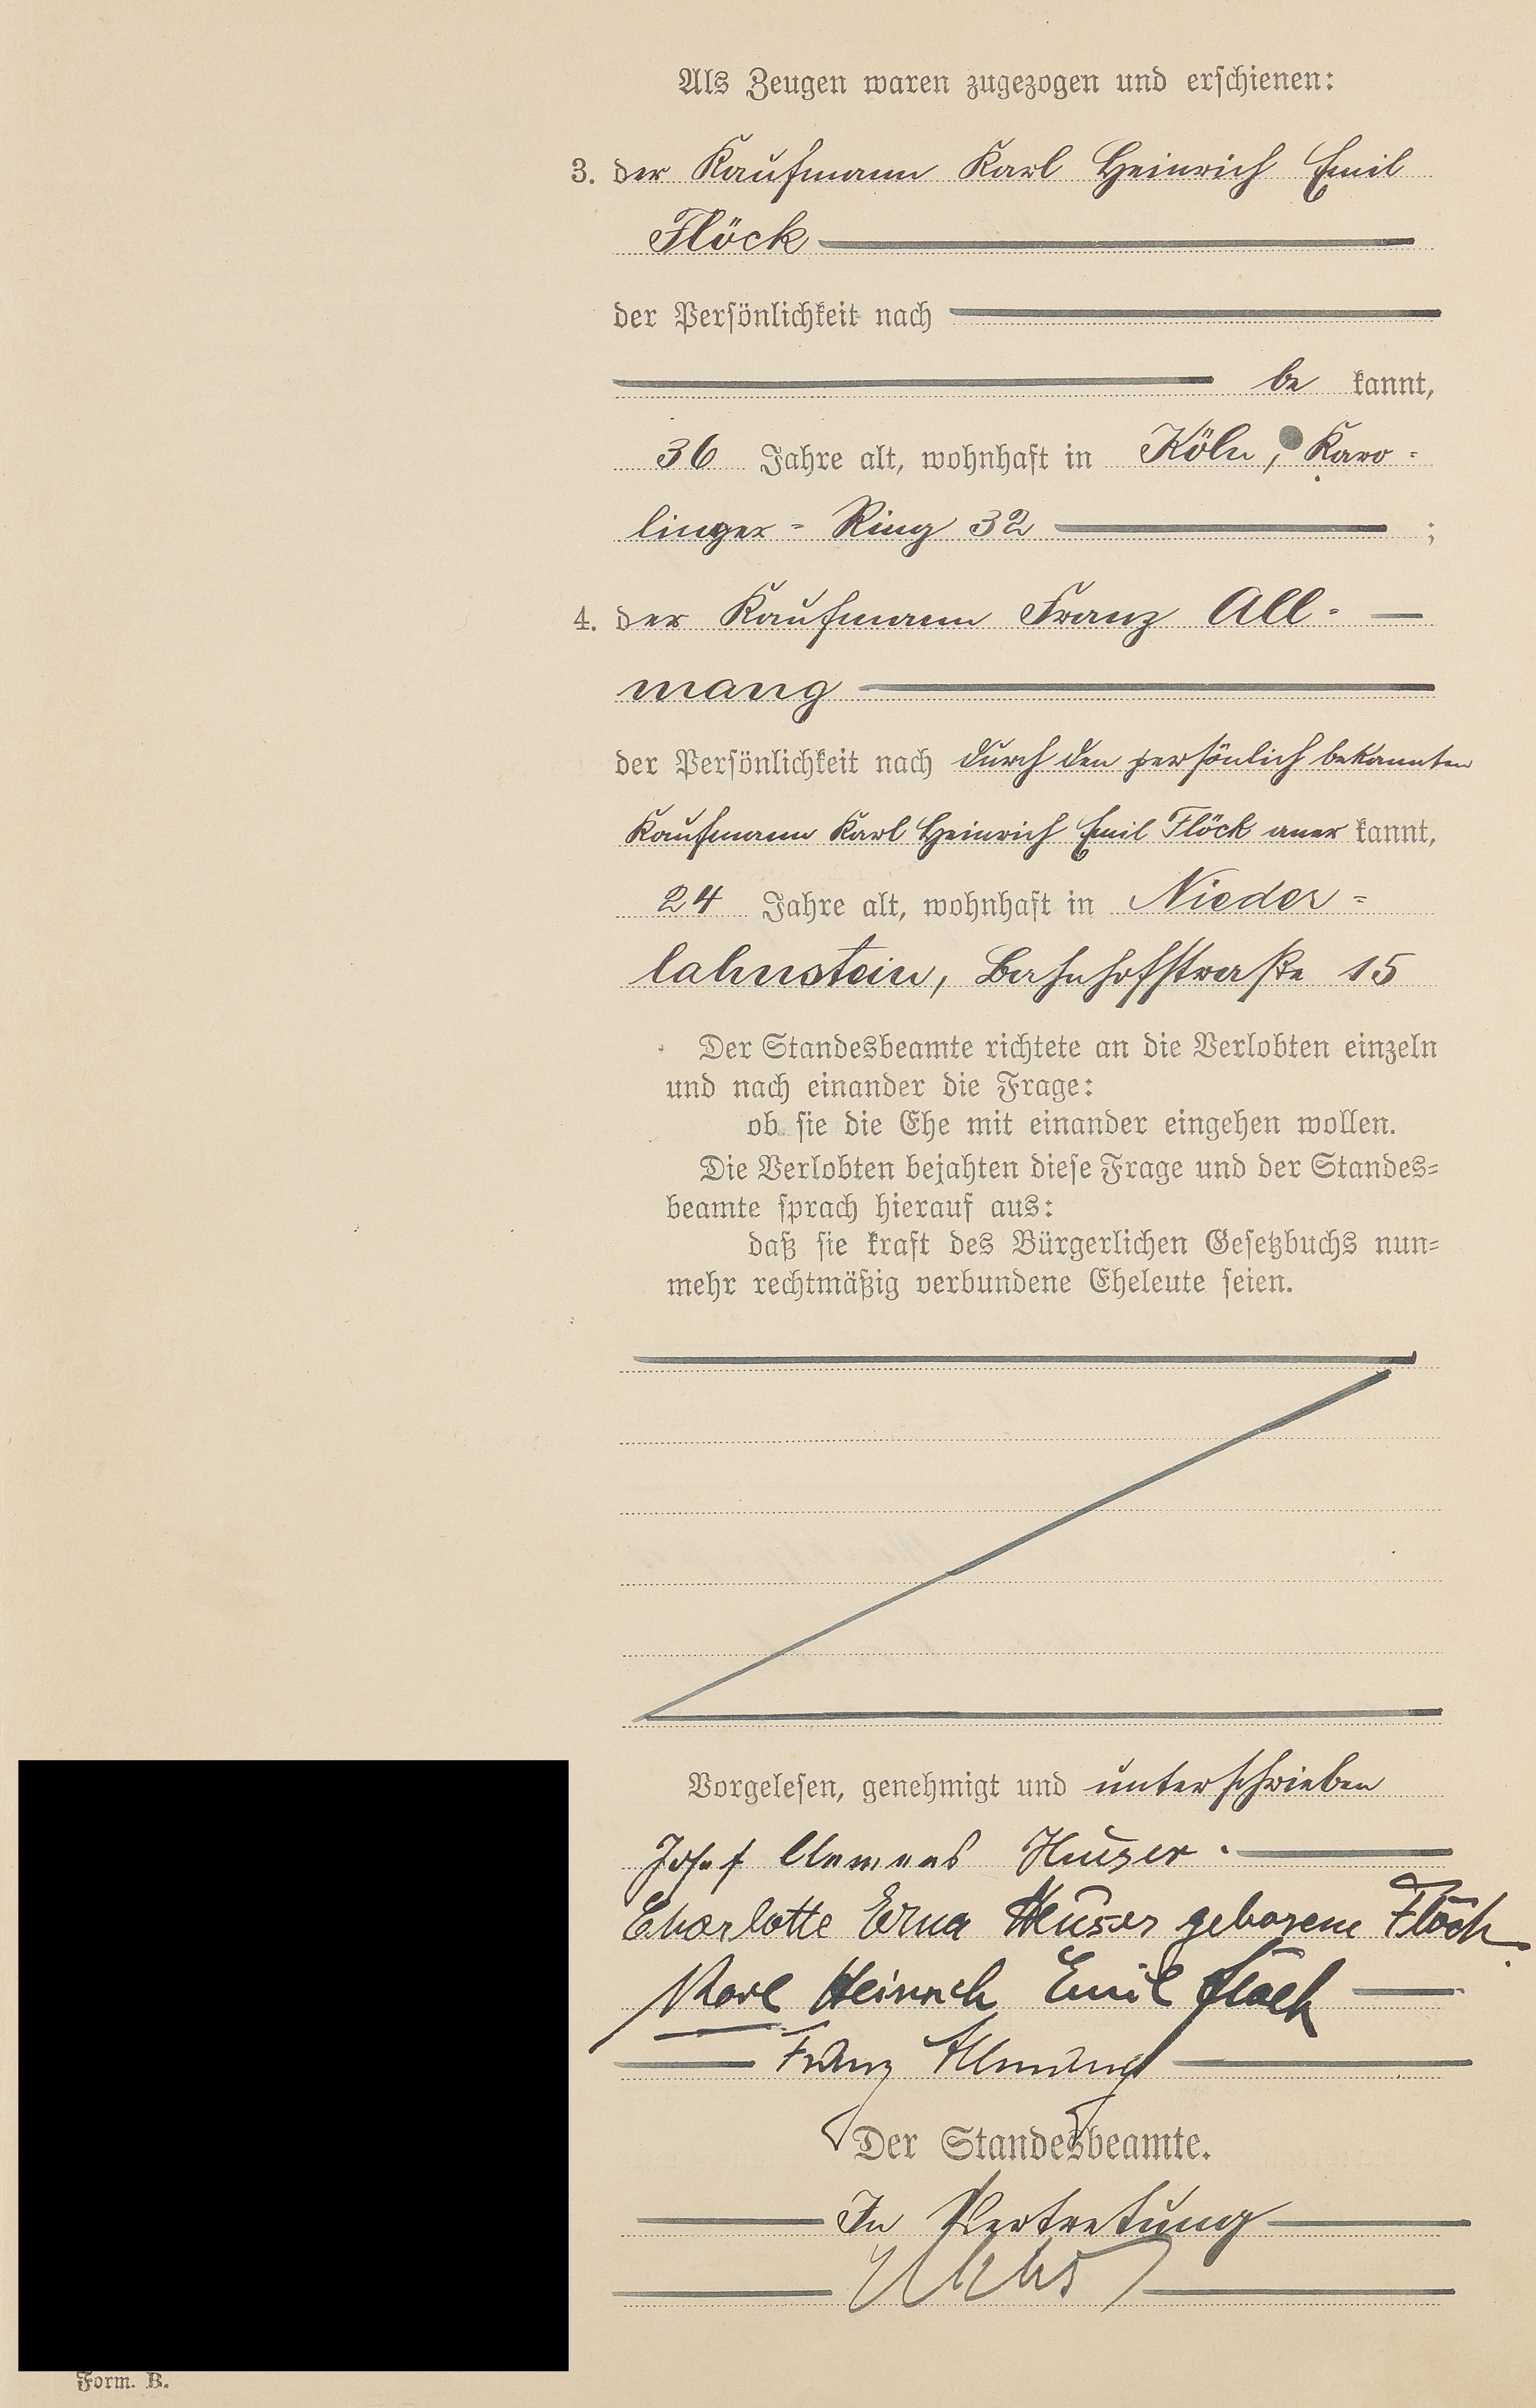 Als Zeugen waren zugezogen und erschienen:
3. der Kaufmann Karl Heinrich Emil
Flöck
der Persönlichkeit nach
be kannt,
36 Jahre alt, wohnhaft in Köln, Karo-
linger-Ring 32 ;
4. der Kaufmann Franz All-
mang
der Persönlichkeit nach durch den persönlich bekannten
Kaufmann Karl Heinrich Emil Flöck aner kannt,
24 Jahre alt, wohnhaft in Nieder-
lahnstein, Bahnhofstraße 15
Der Standesbeamte richtete an die Verlobten einzeln
und nach einander die Frage:
ob sie die Ehe mit einander eingehen wollen.
Die Verlobten bejahten diese Frage und der Standes-
beamte sprach hierauf aus:
daß sie kraft des Bürgerlichen Gesetzbuchs nun-
mehr rechtmäßig verbundene Eheleute seien.
Vorgelesen, genehmigt und unterschrieben
Josef Clemens
Charlotte Erna geborene Flöck.
Karl Heinrich Emil Flöck
Franz Allmang
Der Standesbeamte.
In Vertretung
Form. B.